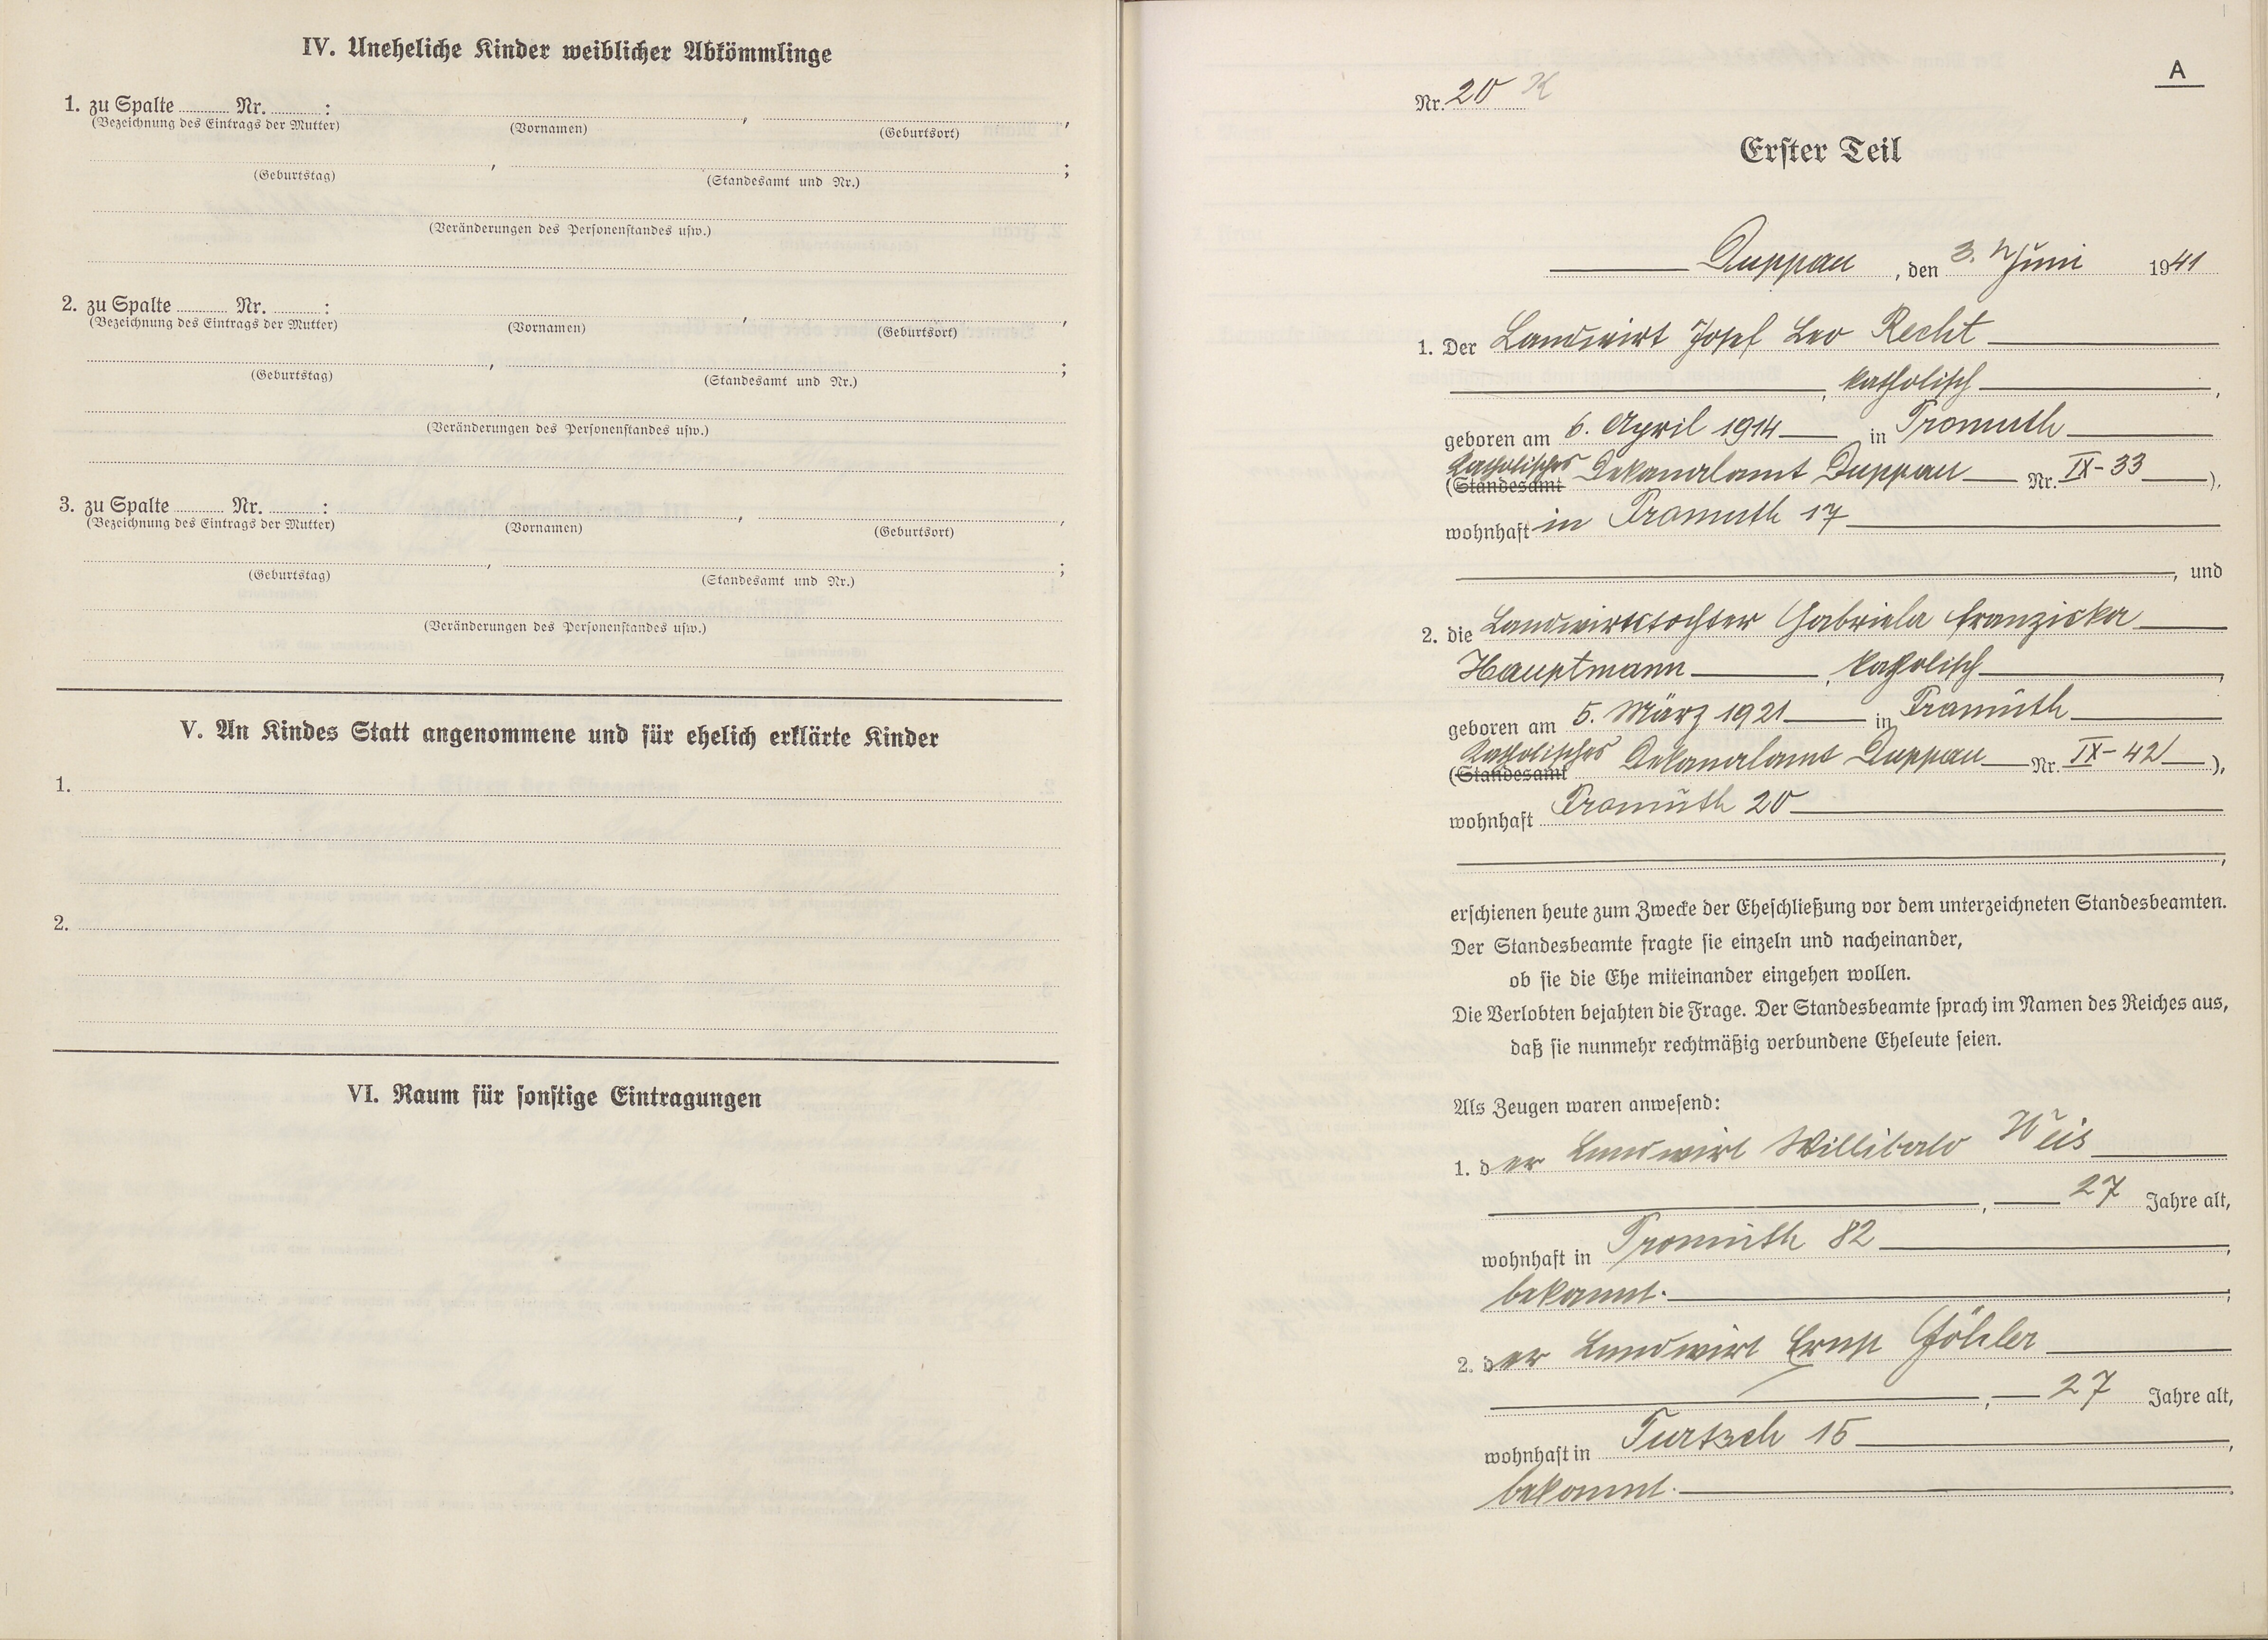 IV. Uneheliche Kinder weiblicher Abkömmlinge
1. zu Spalte ........ Nr. ........ :
(Bezeichnung des Eintrags der Mutter) (Vornamen) , (Geburtsort) ,
(Geburtstag) , (Standesamt und Nr.) ;
(Veränderungen des Personenstandes usw.)
2. zu Spalte ........ Nr. ........ :
(Bezeichnung des Eintrags der Mutter) (Vornamen) , (Geburtsort) ,
(Geburtstag) , (Standesamt und Nr.) ;
(Veränderungen des Personenstandes usw.)
3. zu Spalte ........ Nr. ........ :
(Bezeichnung des Eintrags der Mutter) (Vornamen) , (Geburtsort) ,
(Geburtstag) , (Standesamt und Nr.) ;
(Veränderungen des Personenstandes usw.)
V. An Kindes Statt angenommene und für ehelich erklärte Kinder
1.
2.
VI. Raum für sonstige Eintragungen
A
Nr. 20 K
Erster Teil
Duppau , den 3. Juni 1941
1. Der Landwirt Josef Leo Recht
, katholisch ,
geboren am 6. April 1914 in Promuth
Katholisches
(Standesamt Dekanalamt Duppau Nr. IX-33 ),
wohnhaft in Promuth 17
, und
2. die Landwirtstochter Gabriela Franziska
Hauptmann , katholisch ,
geboren am 5. März 1921 in Promuth
Katholisches
(Standesamt Dekanalamt Duppau Nr. IX-42 ),
wohnhaft Promuth 20
,
erschienen heute zum Zwecke der Eheschließung vor dem unterzeichneten Standesbeamten.
Der Standesbeamte fragte sie einzeln und nacheinander,
ob sie die Ehe miteinander eingehen wollen.
Die Verlobten bejahten die Frage. Der Standesbeamte sprach im Namen des Reiches aus,
daß sie nunmehr rechtmäßig verbundene Eheleute seien.
Als Zeugen waren anwesend:
1. der Landwirt Willibald Weis
, 27 Jahre alt,
wohnhaft in Promuth 82 ,
bekannt. ;
2. der Landwirt Ernst Göhler
, 27 Jahre alt,
wohnhaft in Turtsch 15 ,
bekannt. .